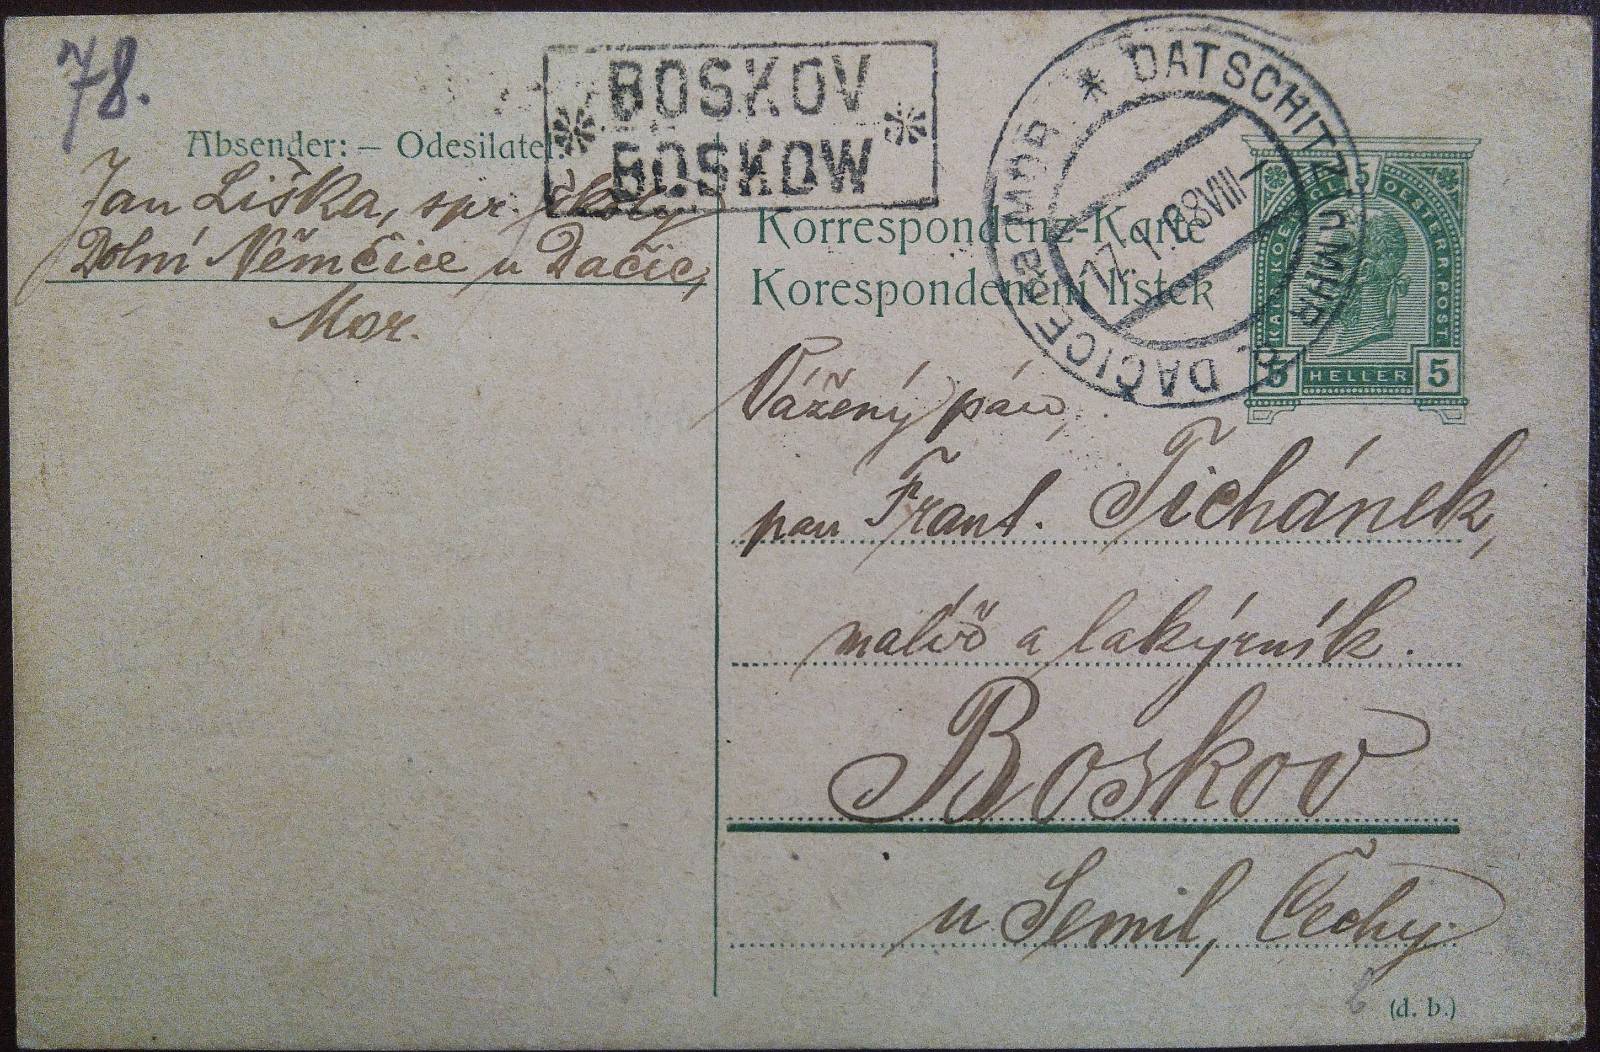 78.
BOSKOV
BOSKOW
DATSCHITZ in MÄHR. DAČICE na MOR
17.1.08 VIII
Absender: – Odesílatel:
Jan Liška, spr. školy
Dolní Němčice u Dačic,
Mor.
Korrespondenz-Karte
Korespondenční lístek
5
KAIS. KOENIGL. OESTERR. POST.
5 HELLER 5
Vážený pán,
pan Frant. Tichánek,
malíř a lakýrník.
Boskov
u Semil, Čechy.
(d. b.)